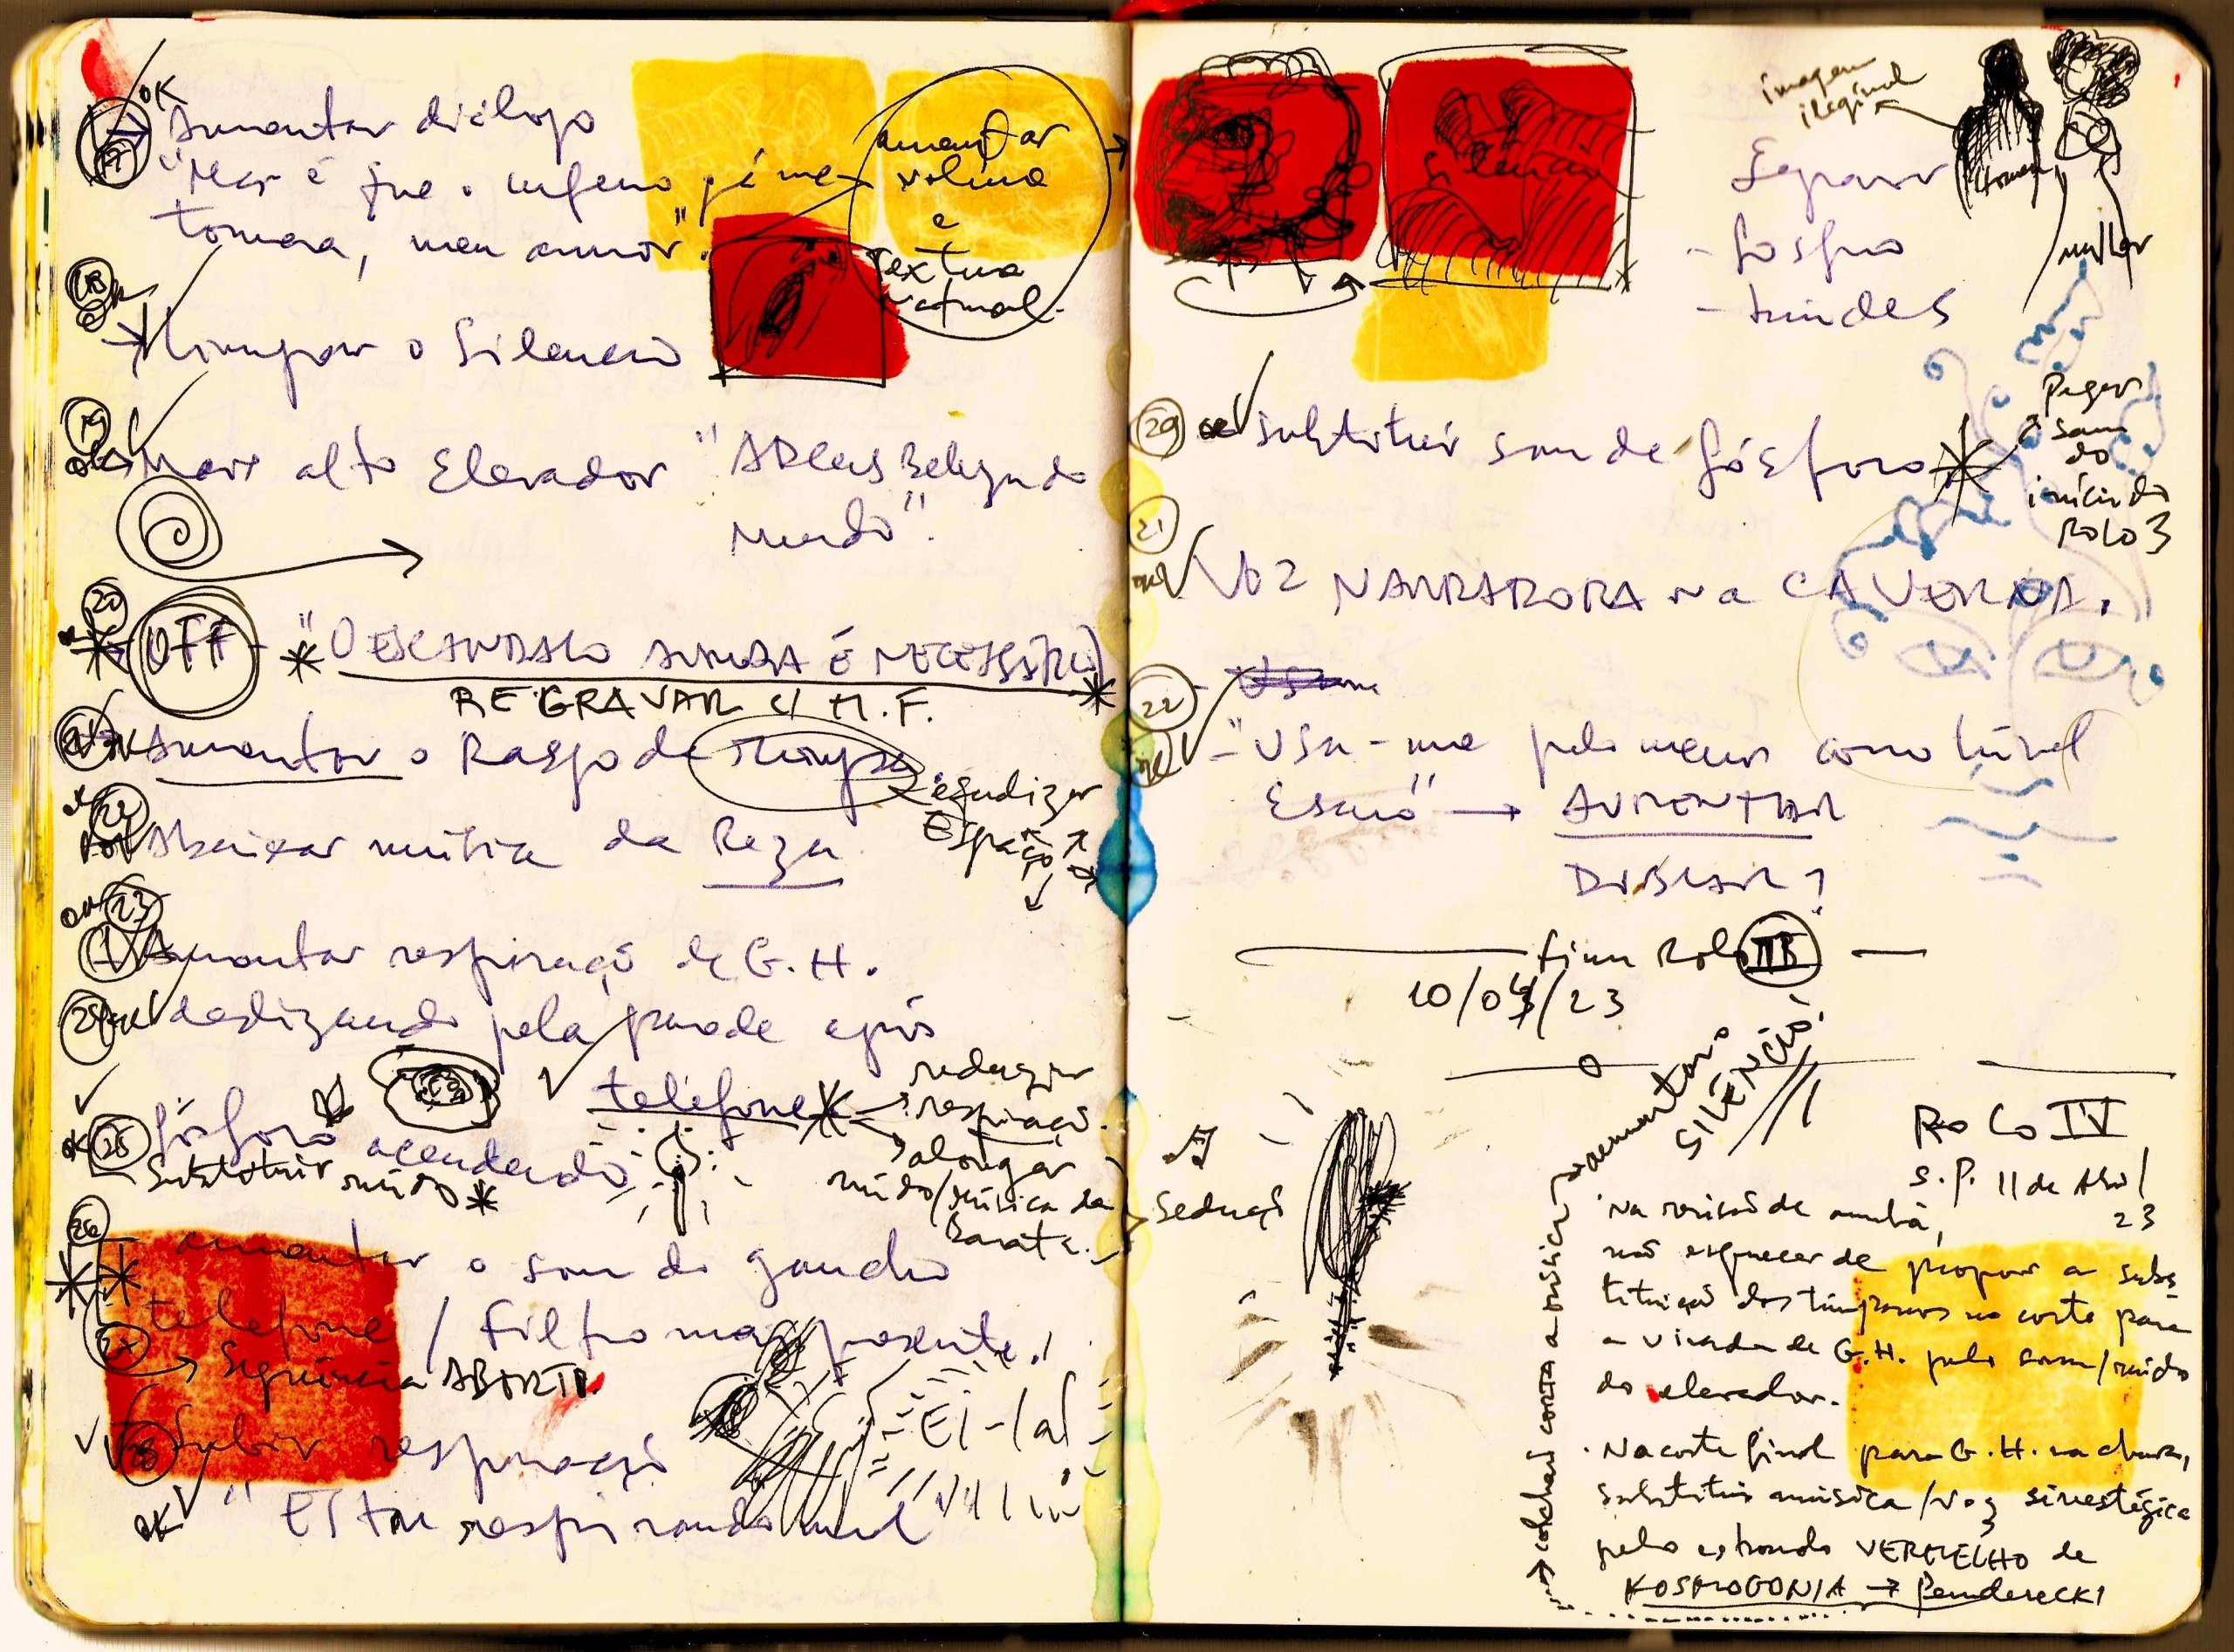 17 OK
Aumentar diálogo
"Mas é que o inferno já me
tomara, meu amor".
aumentar
volume
e
textura
natural.
18
ok
Limpar o Silêncio
19
ok
Mais alto Elevador "ADeus Beleza do
Mundo".
20
OFF - "O ESCÂNDALO AINDA É NECESSÁRIO
REGRAVAR C/ M.F.
21 OK Aumentar o Raspo de
Espaço
22
ok Abaixar música da Reza
23
OK
Aumentar respiração de G.H.
24 ok deslizando pela parede após
telefone
reduzir
respiração.
alongar
ruído/música da
barata.
OK 25 fósforo acendendo
Substituir ruído
26
aumentar o som do gancho
telefone / Filtro mais presente.
27
Sequência ABORTO.
28 Subir respiração
OK "Estou respirando
silêncio
imagem
ilegível
homem
mulher
Separar
- fósforo
- 
29 ok substituir som de fósforo
Pegar
som
do
início do
ROLO 3
21
ok
Voz NARRADORA na CAVERNA.
22
ok
- "Usa-me pelo menos como túnel
Escuro" → AUMENTAR
DOBRAR?
fim Rolo III
10/04/23
Sedução
aumentar o
SILÊNCIO!
colchão corta a música
ROLO IV
S.P. 11 de Abril
23
· Na revisão de amanhã,
não esquecer de propor a subs
tituição dos tímpanos no corte para
a virada de G.H. pelo som/ruído
do elevador.
· No corte final para G.H. na
substituir música/voz sinestésica
pelo estrondo VERMELHO de
KOSMOGONIA → Penderecki